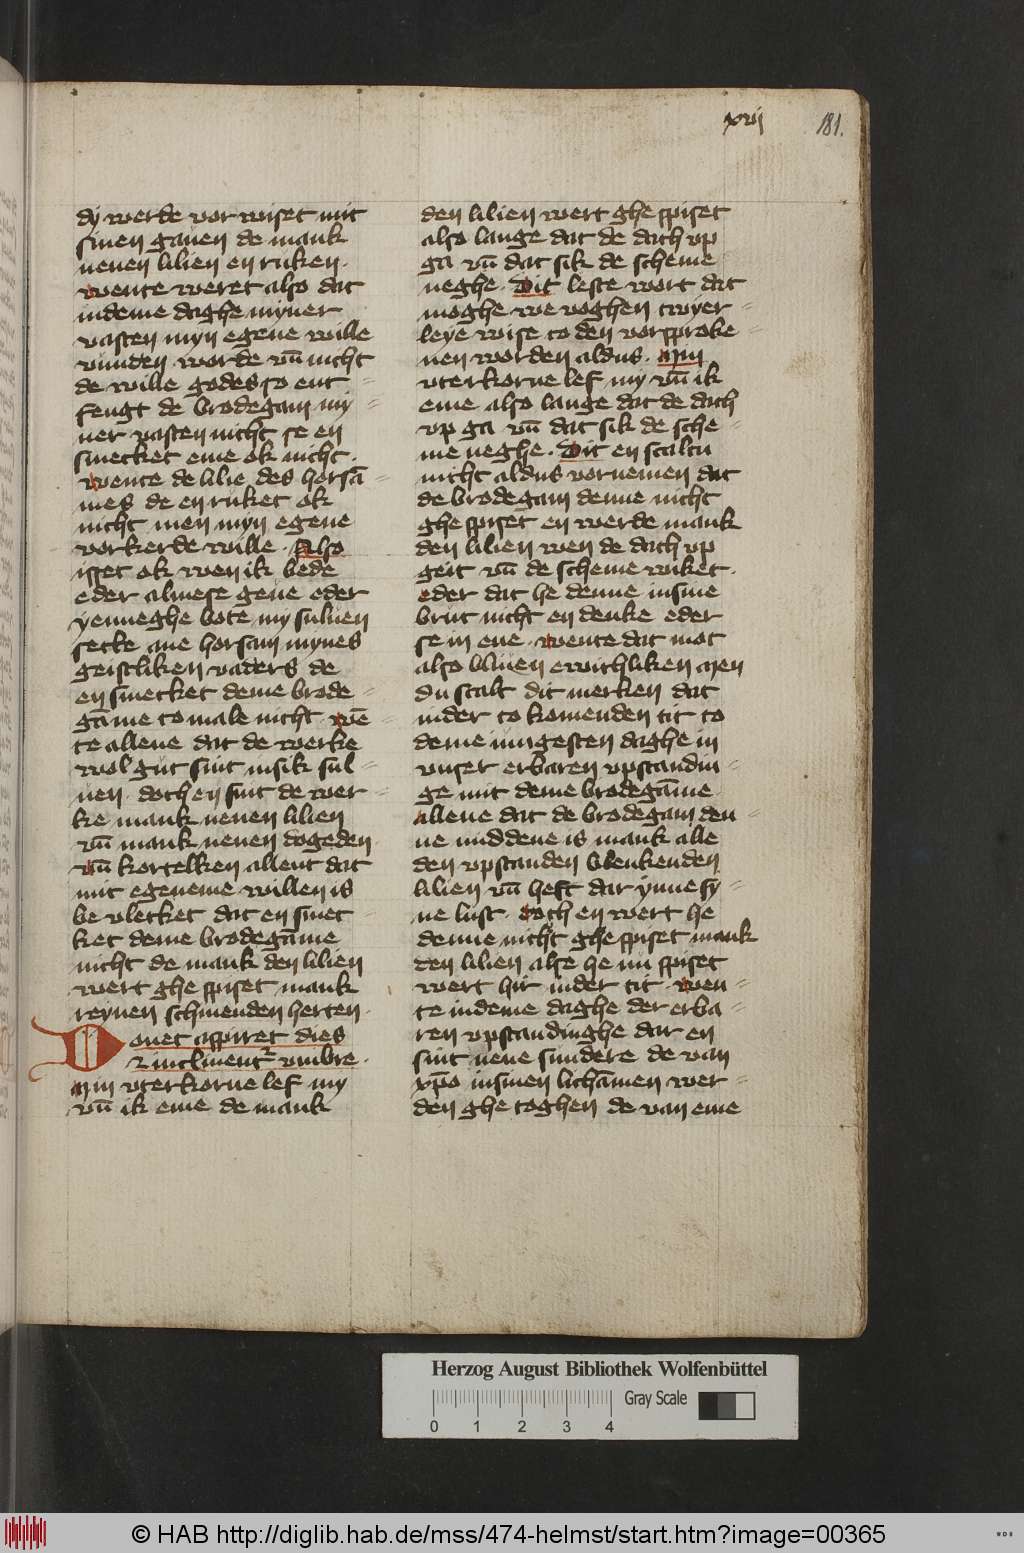 xvij
181.
dy werde vor wiset mit
sinen gauen de mank
nenen lilien en ruken.
wente weret also dat
indeme daghe myner
vasten myn egene wille
vunden worde vn̄ nicht
de wille godes so ent=
fengt de brodegam my=
ner vasten nicht se en
smecket eme ok nicht.
wente de lilie des horsā=
mes de en ruket ok
nicht men myn egene
vorkerde wille. Also
isset ok wen ik bede
eder almese geue eder
yenneghe bote my suluen
sette ane horsam mynes
geistliken vaders de
en smecket deme brode=
gāme to male nicht. wē=
te allene dat de werke
wol gut sint in sik sul=
uen. doch en sint de wer=
ke mank nenen lilien
vn̄ mank nenen dogeden
vn̄ kortelken allent dat
mit egeneme willen is
be vlecket dat en smec
ket deme brodegāme
nicht de mank den lilien
wert ghe spiset mank
reynen schinenden herten.
Donet aspiret dies
⁊ inclinent᷑ vmbre.
Min vterkorne lef my
vn̄ ik eme de mank
den lilien wert ghe spiset
also lange dat de dach vp
ga vn̄ dat sik de scheme
neghe. Dit leste wort dat
moghe we voghen twyer=
leye wise to den vorsproke=
nen worden aldus. Min
vterkorne lef my vn̄ ik
eme also lange dat de dach
vp ga vn̄ dat sik de sche=
me neghe. Dit en scaltu
nicht aldus vornemen dat
de brodegam denne nicht
ghe spiset en werde mank
den lilien wen de dach vp
geit vn̄ de scheme wiket.
eder dat he denne in sine
brut nicht en denke eder
se in ene. wente dat mot
also bliuen ewichliken Men
du scalt dit merken dat
in der to komenden tit to
deme iungesten daghe in
vnser erbaren vpstandin=
ge mit deme brodegāme.
allene dat de brodegam den=
ne middene is mank alle
den vpstanden blenkenden
lilien vn̄ heft dar ynne sy=
ne lust. doch en wert he
denne nicht ghe spiset mank
den lilien alse he nu spiset
wert hir in der tit. wen=
te in deme daghe der erba=
ren vpstandinghe dar en
sint nene sundere de van
xp̄o in sinen lichāmen wer=
den ghe toghen de van eme
Herzog August Bibliothek Wolfenbüttel
Gray Scale
0 1 2 3 4
© HAB http://diglib.hab.de/mss/474-helmst/start.htm?image=00365